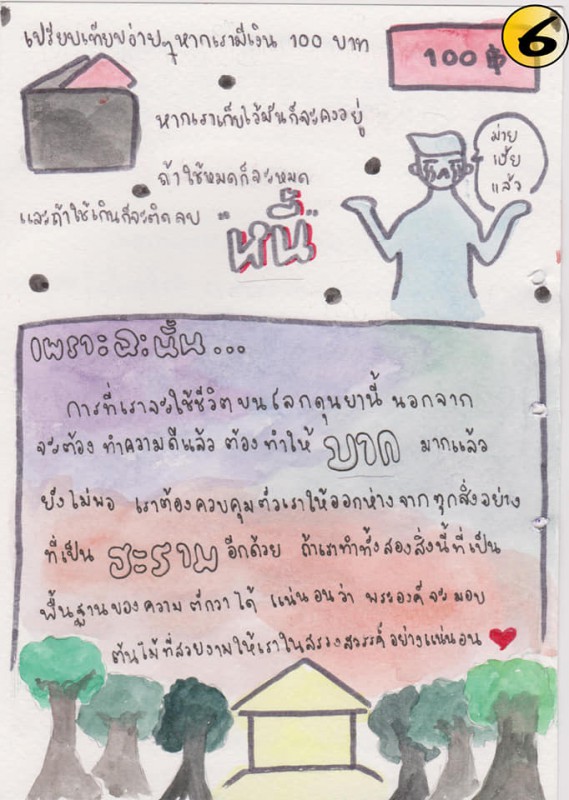 6
เปรียบเทียบง่ายๆหากเรามีเงิน 100 บาท
100 ฿
หากเราเก็บไว้มันก็จะคงอยู่
ม่าย
เปี้ย
แล้ว
ถ้าใช้หมดก็จะหมด
และถ้าใช้เกินก็จะติดลบ "หนี้"
เพราะฉะนั้น...
การที่เราจะใช้ชีวิตบนโลกดุนยานี้ นอกจาก
จะต้อง ทำความดีแล้ว ต้องทำให้ มาก มากแล้ว
ยังไม่พอ เราต้องควบคุมตัวเราให้ออกห่างจากทุกสิ่งอย่าง
ที่เป็น ฮะรอม อีกด้วย ถ้าเราทำทั้งสองสิ่งนี้ที่เป็น
พื้นฐานของความตักวาได้ แน่นอนว่า พระองค์จะมอบ
ต้นไม้ที่สวยงามให้เราในสรวงสวรรค์อย่างแน่นอน